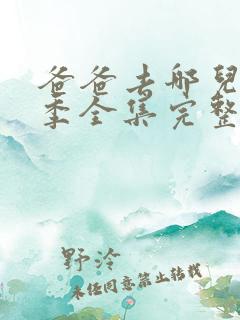 爸爸去哪兒
季全集完整
野泠
未经同意禁止转载